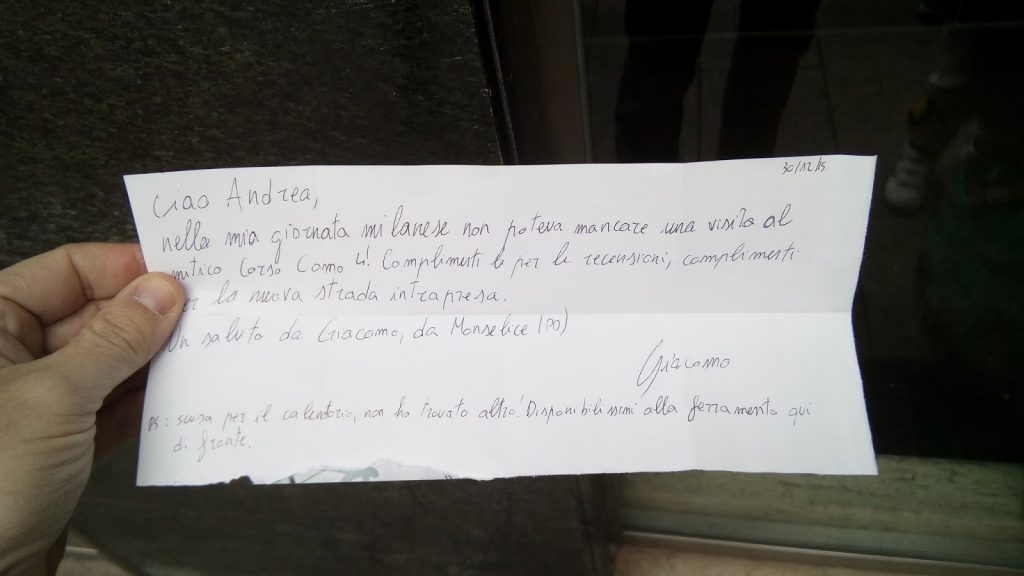 30/12/15
Ciao Andrea,
nella mia giornata milanese non poteva mancare una visita al
mitico Corso Como 4! Complimenti per le recensioni, complimenti
per la nuova strada intrapresa.
Un saluto da Giacomo, da Monselice (PD)
Giacomo
PS: scusa per il calendario, non ho trovato altro! Disponibilissimi alla ferramenta qui
di fronte.